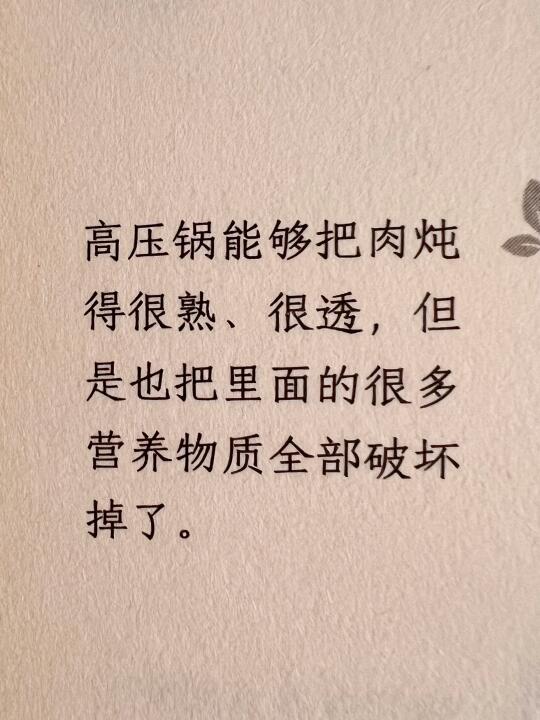 高压锅能够把肉炖
得很熟、很透，但
是也把里面的很多
营养物质全部破坏
掉了。